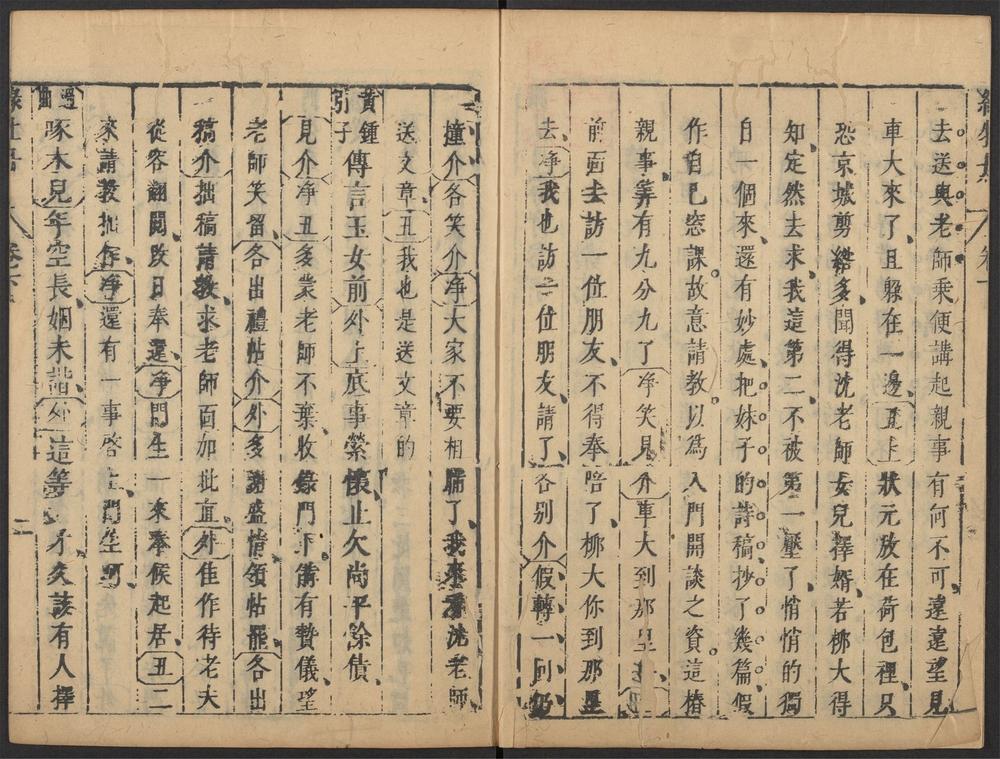 去送與老師乘便講起親事有何不可遠遠望見
車大來了且躲在一邊丑上狀元放在荷包裡只
恐京城剪綹多聞得沈老師女兒擇婿若柳大得
知定然去求我這第二不被第一壓了悄悄的獨
自一個來還有妙處把妹子的詩稿抄了幾篇假
作自己窓課故意請教以爲入門開談之資這樁
親事筭有九分九了淨笑見介車大到那里
前面去訪一位朋友不得奉陪了柳大你到那里
去淨我也訪一位朋友請了各別介假轉一回仍
撞介各笑介淨大家不要相瞞了我來看沈老師
送文章丑我也是送文章的
黃鍾引子傳言玉女前外上底事縈懷止欠尚平餘債
見介淨丑多蒙老師不棄收錄門下備有贄儀望
老師笑留各出禮帖介外多謝盛情領帖罷各出
稿介拙稿請教求老師面加批直外佳作待老夫
從容翻閱改日奉還淨門生一來奉候起居丑二
來請教拙作淨還有一事啓上門生
過曲啄木兒年空長姻未諧外這等 才久該有人擇